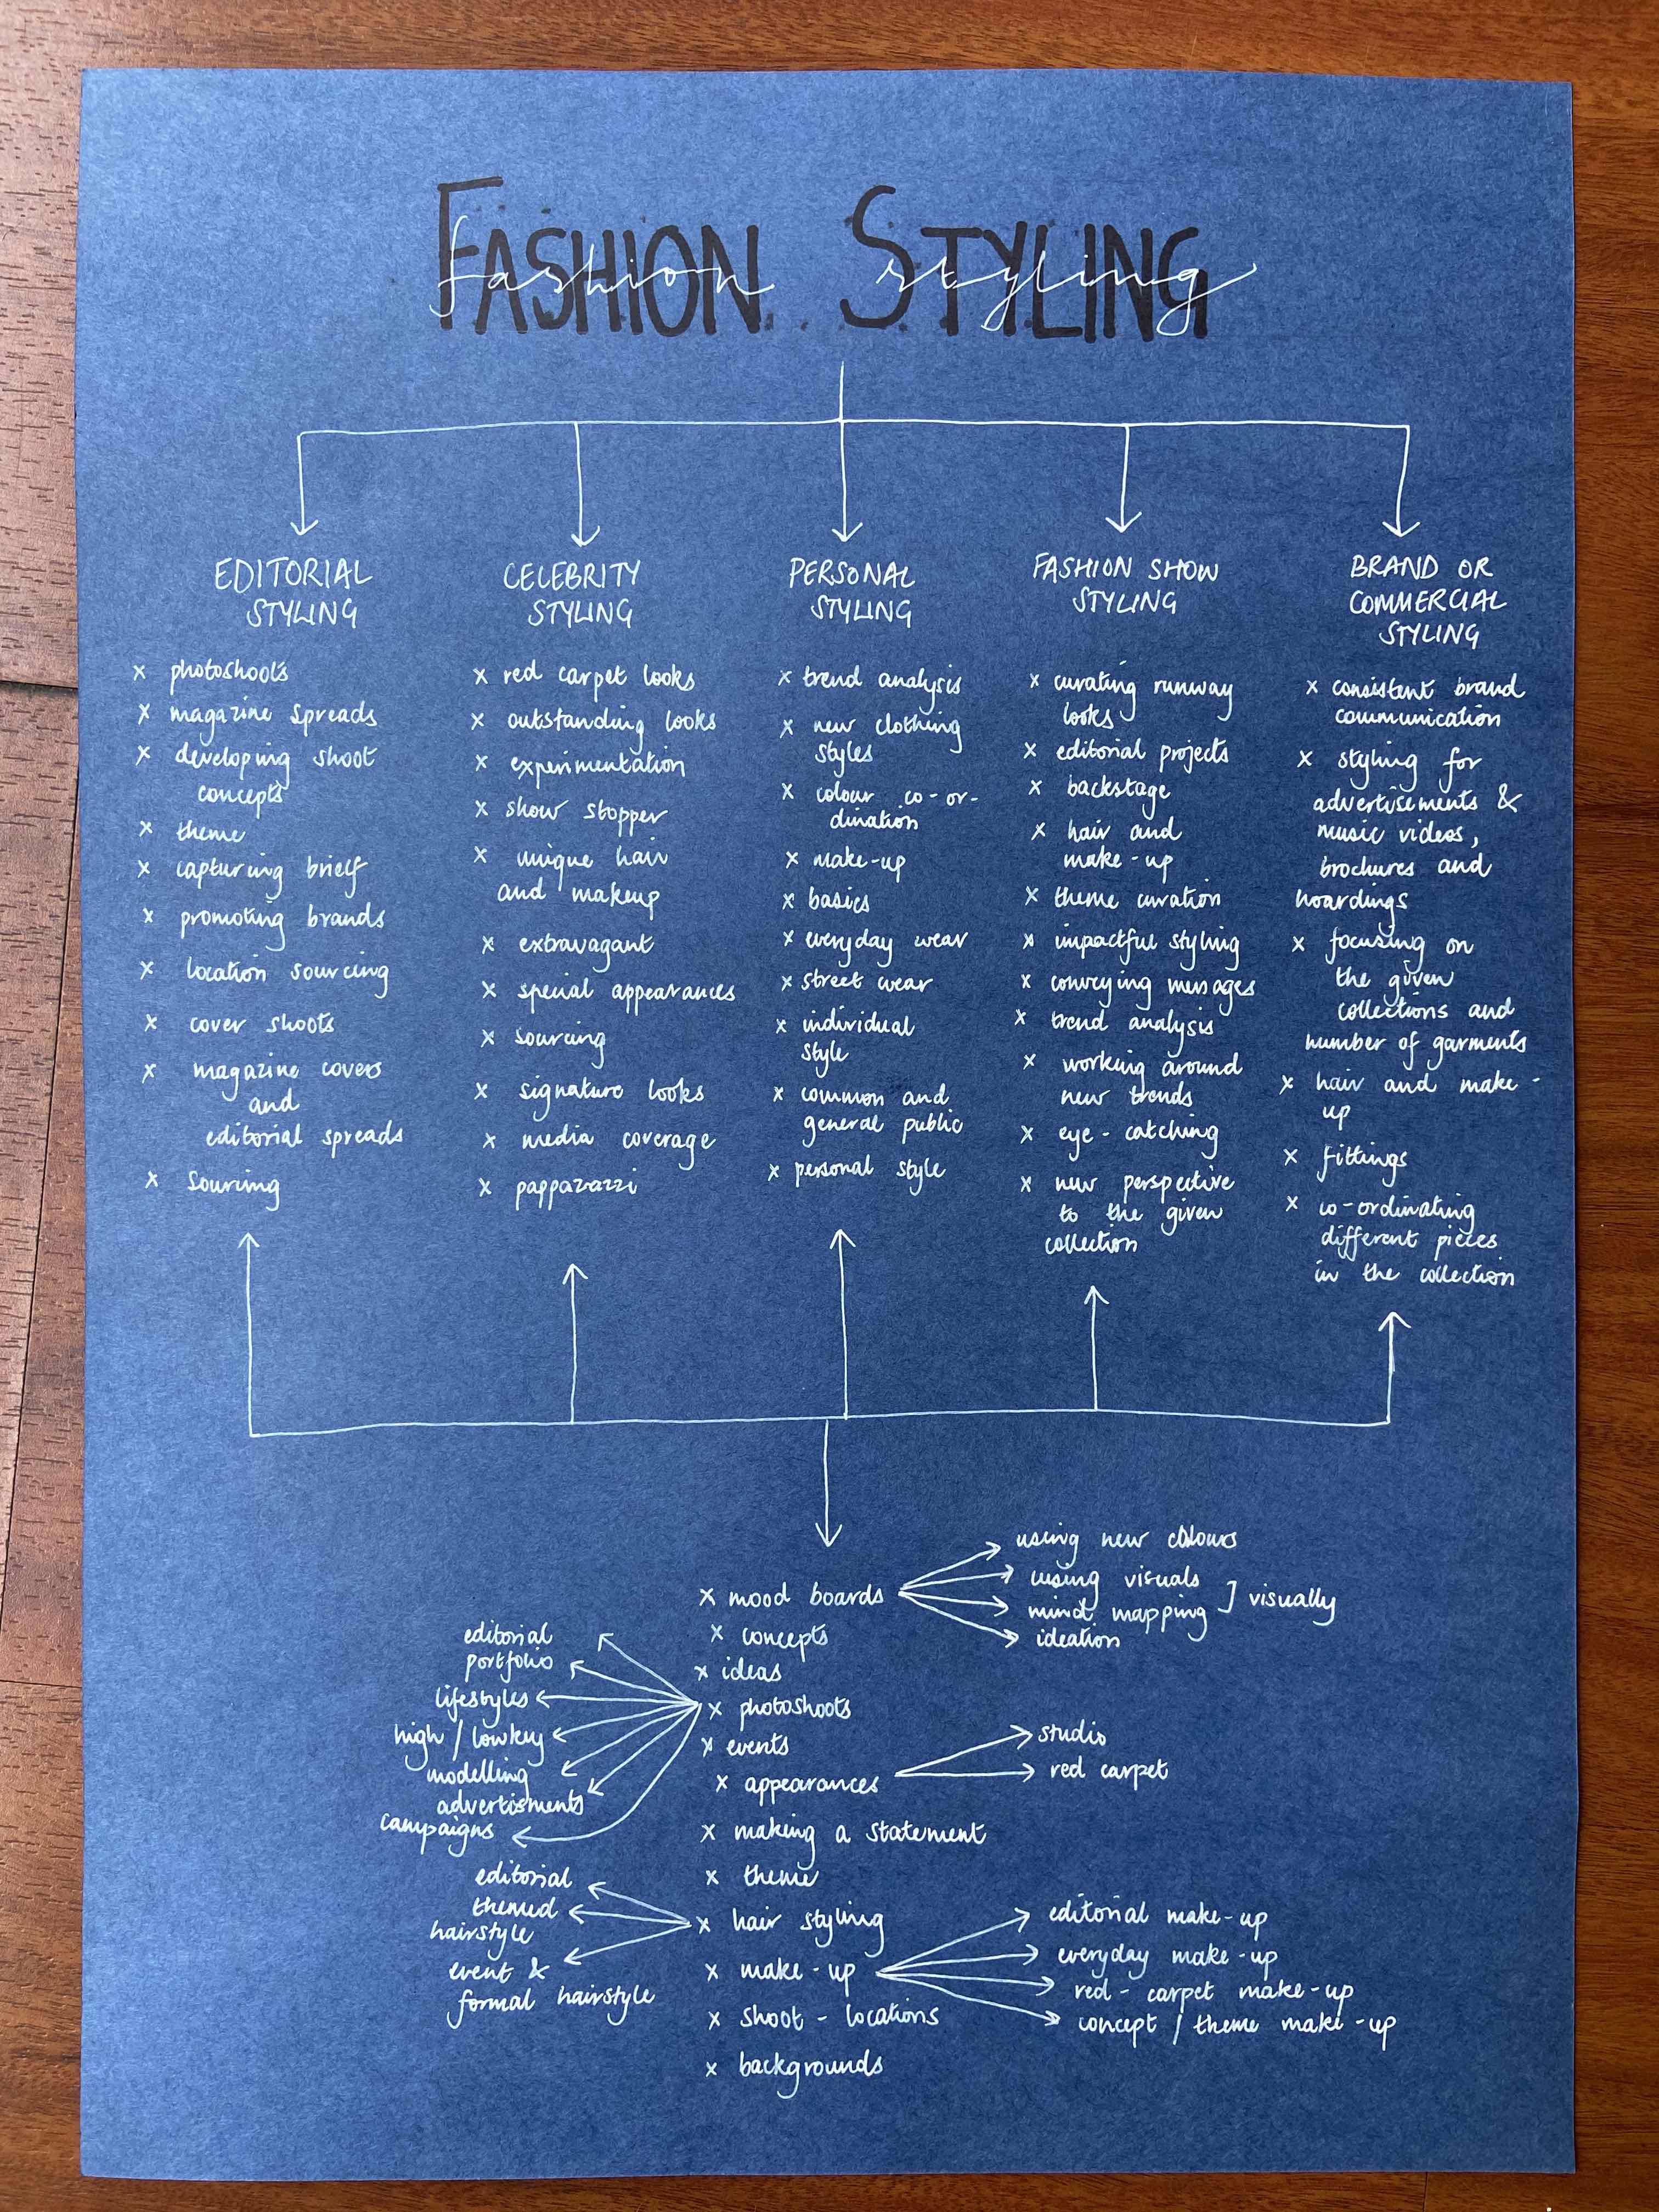 FASHION STYLING
fashion styling
EDITORIAL
STYLING
x photoshoots
x magazine spreads
x developing shoot
concepts
x theme
x capturing brief
x promoting brands
x location sourcing
x cover shoots
x magazine covers
and
editorial spreads
x sourcing
CELEBRITY
STYLING
x red carpet looks
x outstanding looks
x experimentation
x show stopper
x unique hair
and makeup
x extravagant
x special appearances
x sourcing
x signature looks
x media coverage
x pappazazzi
PERSONAL
STYLING
x trend analysis
x new clothing
styles
x colour co-or-
dination
x make-up
x basics
x everyday wear
x street wear
x individual
style
x common and
general public
x personal style
FASHION SHOW
STYLING
x curating runway
looks
x editorial projects
x backstage
x hair and
make-up
x theme curation
x impactful styling
x conveying messages
x trend analysis
x working around
new trends
x eye-catching
x new perspective
to the given
collection
BRAND OR
COMMERCIAL
STYLING
x consistent brand
communication
x styling for
advertisements &
music videos,
brochures and
hoardings
x focusing on
the given
collections and
number of garments
x hair and make-
up
x fittings
x co-ordinating
different pieces
in the collection
x mood boards
using new colours
using visuals
mind mapping ] visually
ideation
x concepts
x ideas
x photoshoots
editorial
portfolio
lifestyles
high / lowkey
modelling
advertisments
campaigns
x events
x appearances
studio
red carpet
x making a statement
x theme
x hair styling
editorial
themed
hairstyle
event &
formal hairstyle
x make-up
editorial make-up
everyday make-up
red-carpet make-up
concept / theme make-up
x shoot-locations
x backgrounds